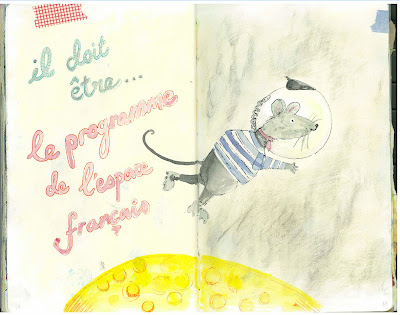 il doit
être...
le programme
de l'espace
français